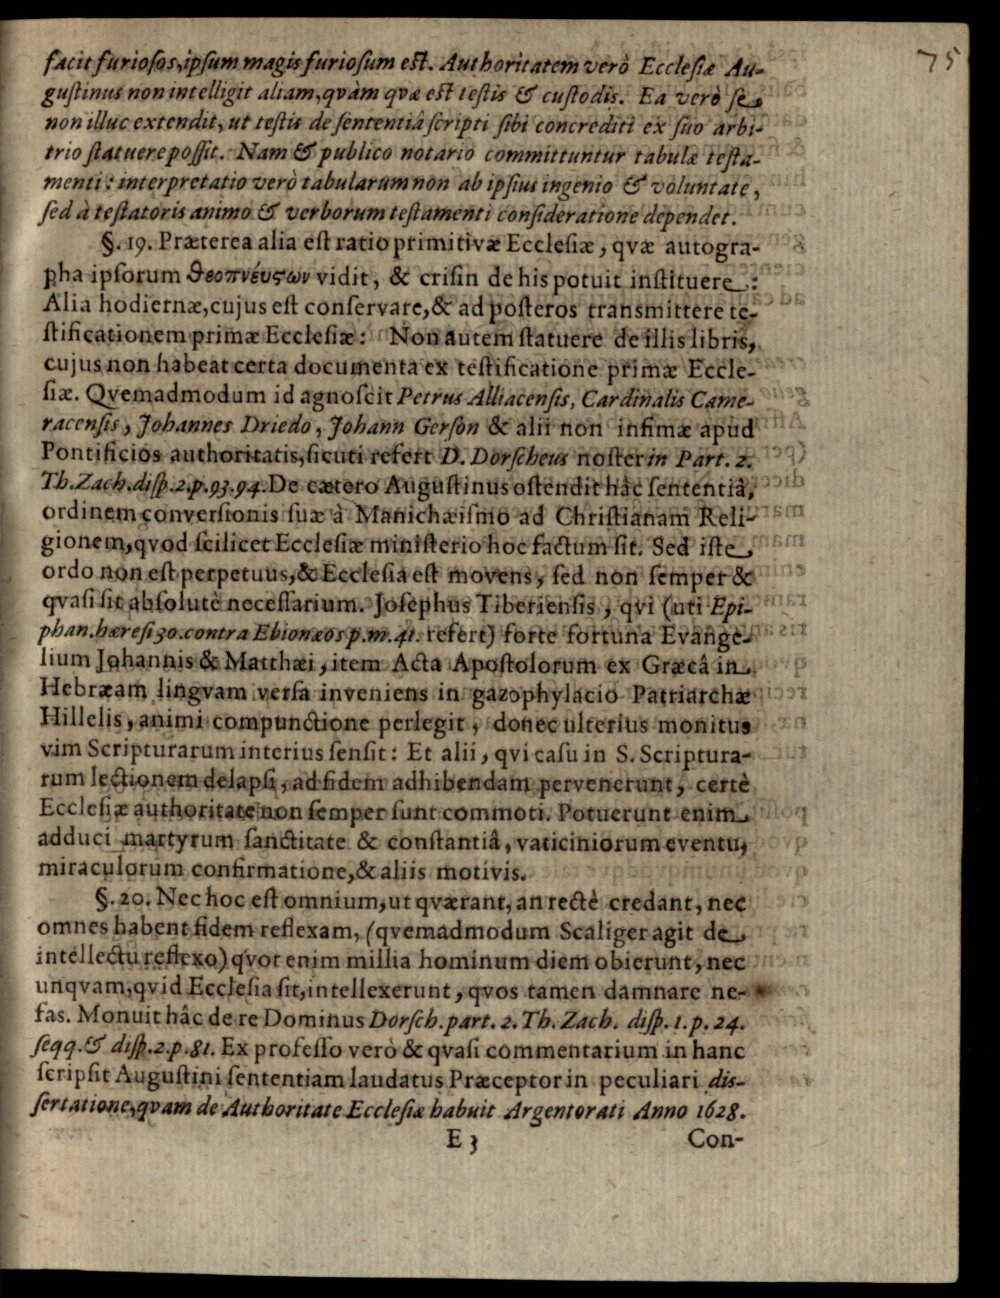 75
facit furioſos, ipſum magis furioſum eſt. Authoritatem verò Eccleſiæ Au-
guſtinus non intelligit aliam, qvàm qvæ eſt teſtis & cuſtodis. Ea verò ſe
non illuc extendit, ut teſtis de ſententiâ ſcripti ſibi concrediti ex ſuo arbi-
trio ſtatuere poſſit. Nam & publico notario committuntur tabulæ teſta-
menti: interpretatio verò tabularum non ab ipſius ingenio & voluntate,
ſed à teſtatoris animo & verborum teſtamenti conſideratione dependet.
§. 19. Præterea alia eſt ratio primitivæ Eccleſiæ, qvæ autogra-
pha ipſorum θεοπνέυςων vidit, & criſin de his potuit inſtituere:
Alia hodiernæ, cujus eſt conſervare, & ad poſteros transmittere te-
ſtificationem primæ Eccleſiæ: Non autem ſtatuere de illis libris,
cujus non habeat certa documenta ex teſtificatione primæ Eccle-
ſiæ. Qvemadmodum id agnoſcit Petrus Alliacenſis, Cardinalis Came-
racenſis, Johannes Driedo, Johann Gerſon & alii non infimæ apud
Pontificios authoritatis, ſicuti refert D. Dorſcheus noſter in Part. 2.
Th. Zach. diſp. 2. p. 93. 94. De cætero Auguſtinus oſtendit hâc ſententiâ,
ordinem converſionis ſuæ à Manichæiſmo ad Chriſtianam Reli-
gionem, qvod ſcilicet Eccleſiæ miniſterio hoc factum ſit. Sed iſte
ordo non eſt perpetuus, & Eccleſia eſt movens, ſed non ſemper &
qvaſi ſit abſolutè neceſſarium. Joſephus Tiberienſis, qvi (uti Epi-
phan. hæreſi 30. contra Ebionæos p. m. 41. refert) forte fortuna Evange-
lium Johannis & Matthæi, item Acta Apoſtolorum ex Græcâ in
Hebræam lingvam verſa inveniens in gazophylacio Patriarchæ
Hillelis, animi compunctione perlegit, donec ulterius monitus
vim Scripturarum interius ſenſit: Et alii, qvi caſu in S. Scriptura-
rum lectionem delapſi, ad fidem adhibendam pervenerunt, certè
Eccleſiæ authoritate non ſemper ſunt commoti. Potuerunt enim
adduci martyrum ſanctitate & conſtantiâ, vaticiniorum eventu,
miraculorum confirmatione, & aliis motivis.
§. 20. Nec hoc eſt omnium, ut qværant, an rectè credant, nec
omnes habent fidem reflexam, (qvemadmodum Scaliger agit de
intellectu reflexo) qvot enim millia hominum diem obierunt, nec
unqvam, qvid Eccleſia ſit, intellexerunt, qvos tamen damnare ne-
fas. Monuit hâc de re Dominus Dorſch. part. 2. Th. Zach. diſp. 1. p. 24.
ſeqq. & diſp. 2. p. 81. Ex profeſſo verò & qvaſi commentarium in hanc
ſcripſit Auguſtini ſententiam laudatus Præceptor in peculiari diſ-
ſertatione, qvam de Authoritate Eccleſiæ habuit Argentorati Anno 1628.
E 3 Con-